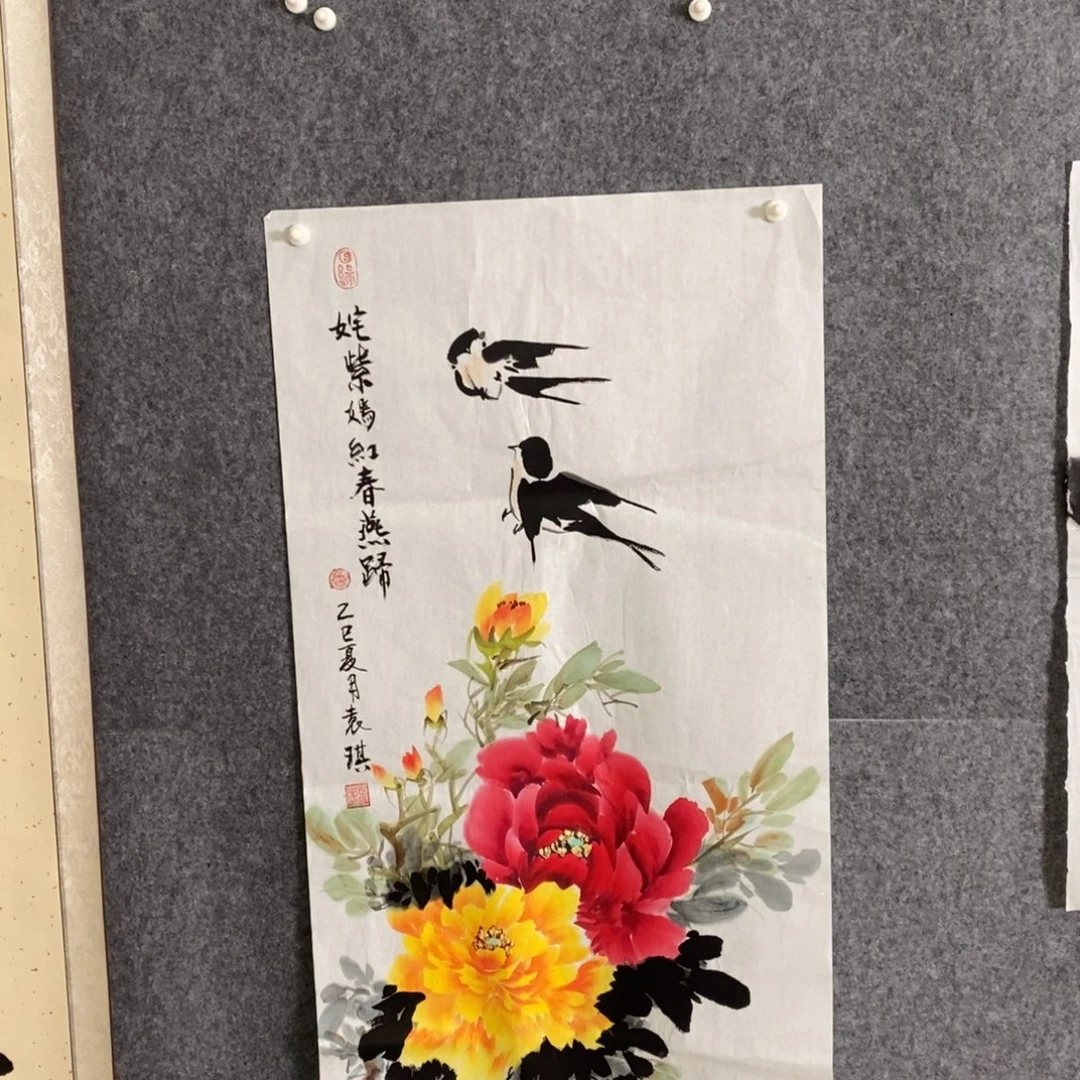 姹紫嫣红春燕归
乙巳夏月袁琪